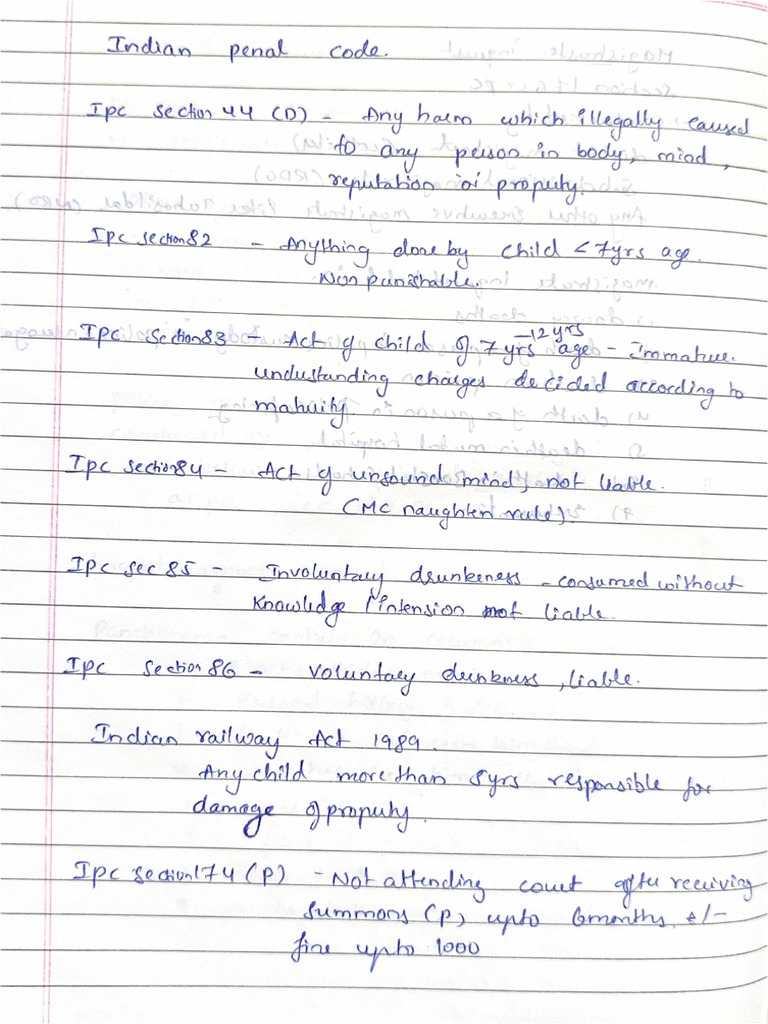 Indian penal code.
Ipc section 44 (D) - Any harm which illegally caused
to any person in body, mind,
reputation or property.
Ipc section 82 - Anything done by child < 7yrs age.
Non punishable.
Ipc section 83 - Act of child of 7 yrs -12 yrs age - Immature.
understanding charges decided according to
maturity.
Ipc section 84 - Act of unsound mind, not liable.
(MC naughten rule).
Ipc sec 85 - Involuntary drunkeness - consumed without
knowledge / intension not liable.
Ipc section 86 - Voluntary drunkness, liable.
Indian railway Act 1989.
Any child more than 5yrs responsible for
damage of property.
Ipc section 174 (P) - Not attending court after receiving
summons (P) upto 6months, +/-
fine upto 1000